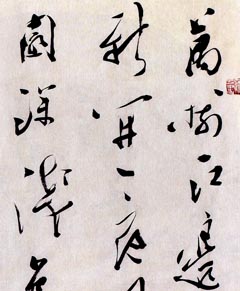 萬樹江邊
新開一夜
園深淺